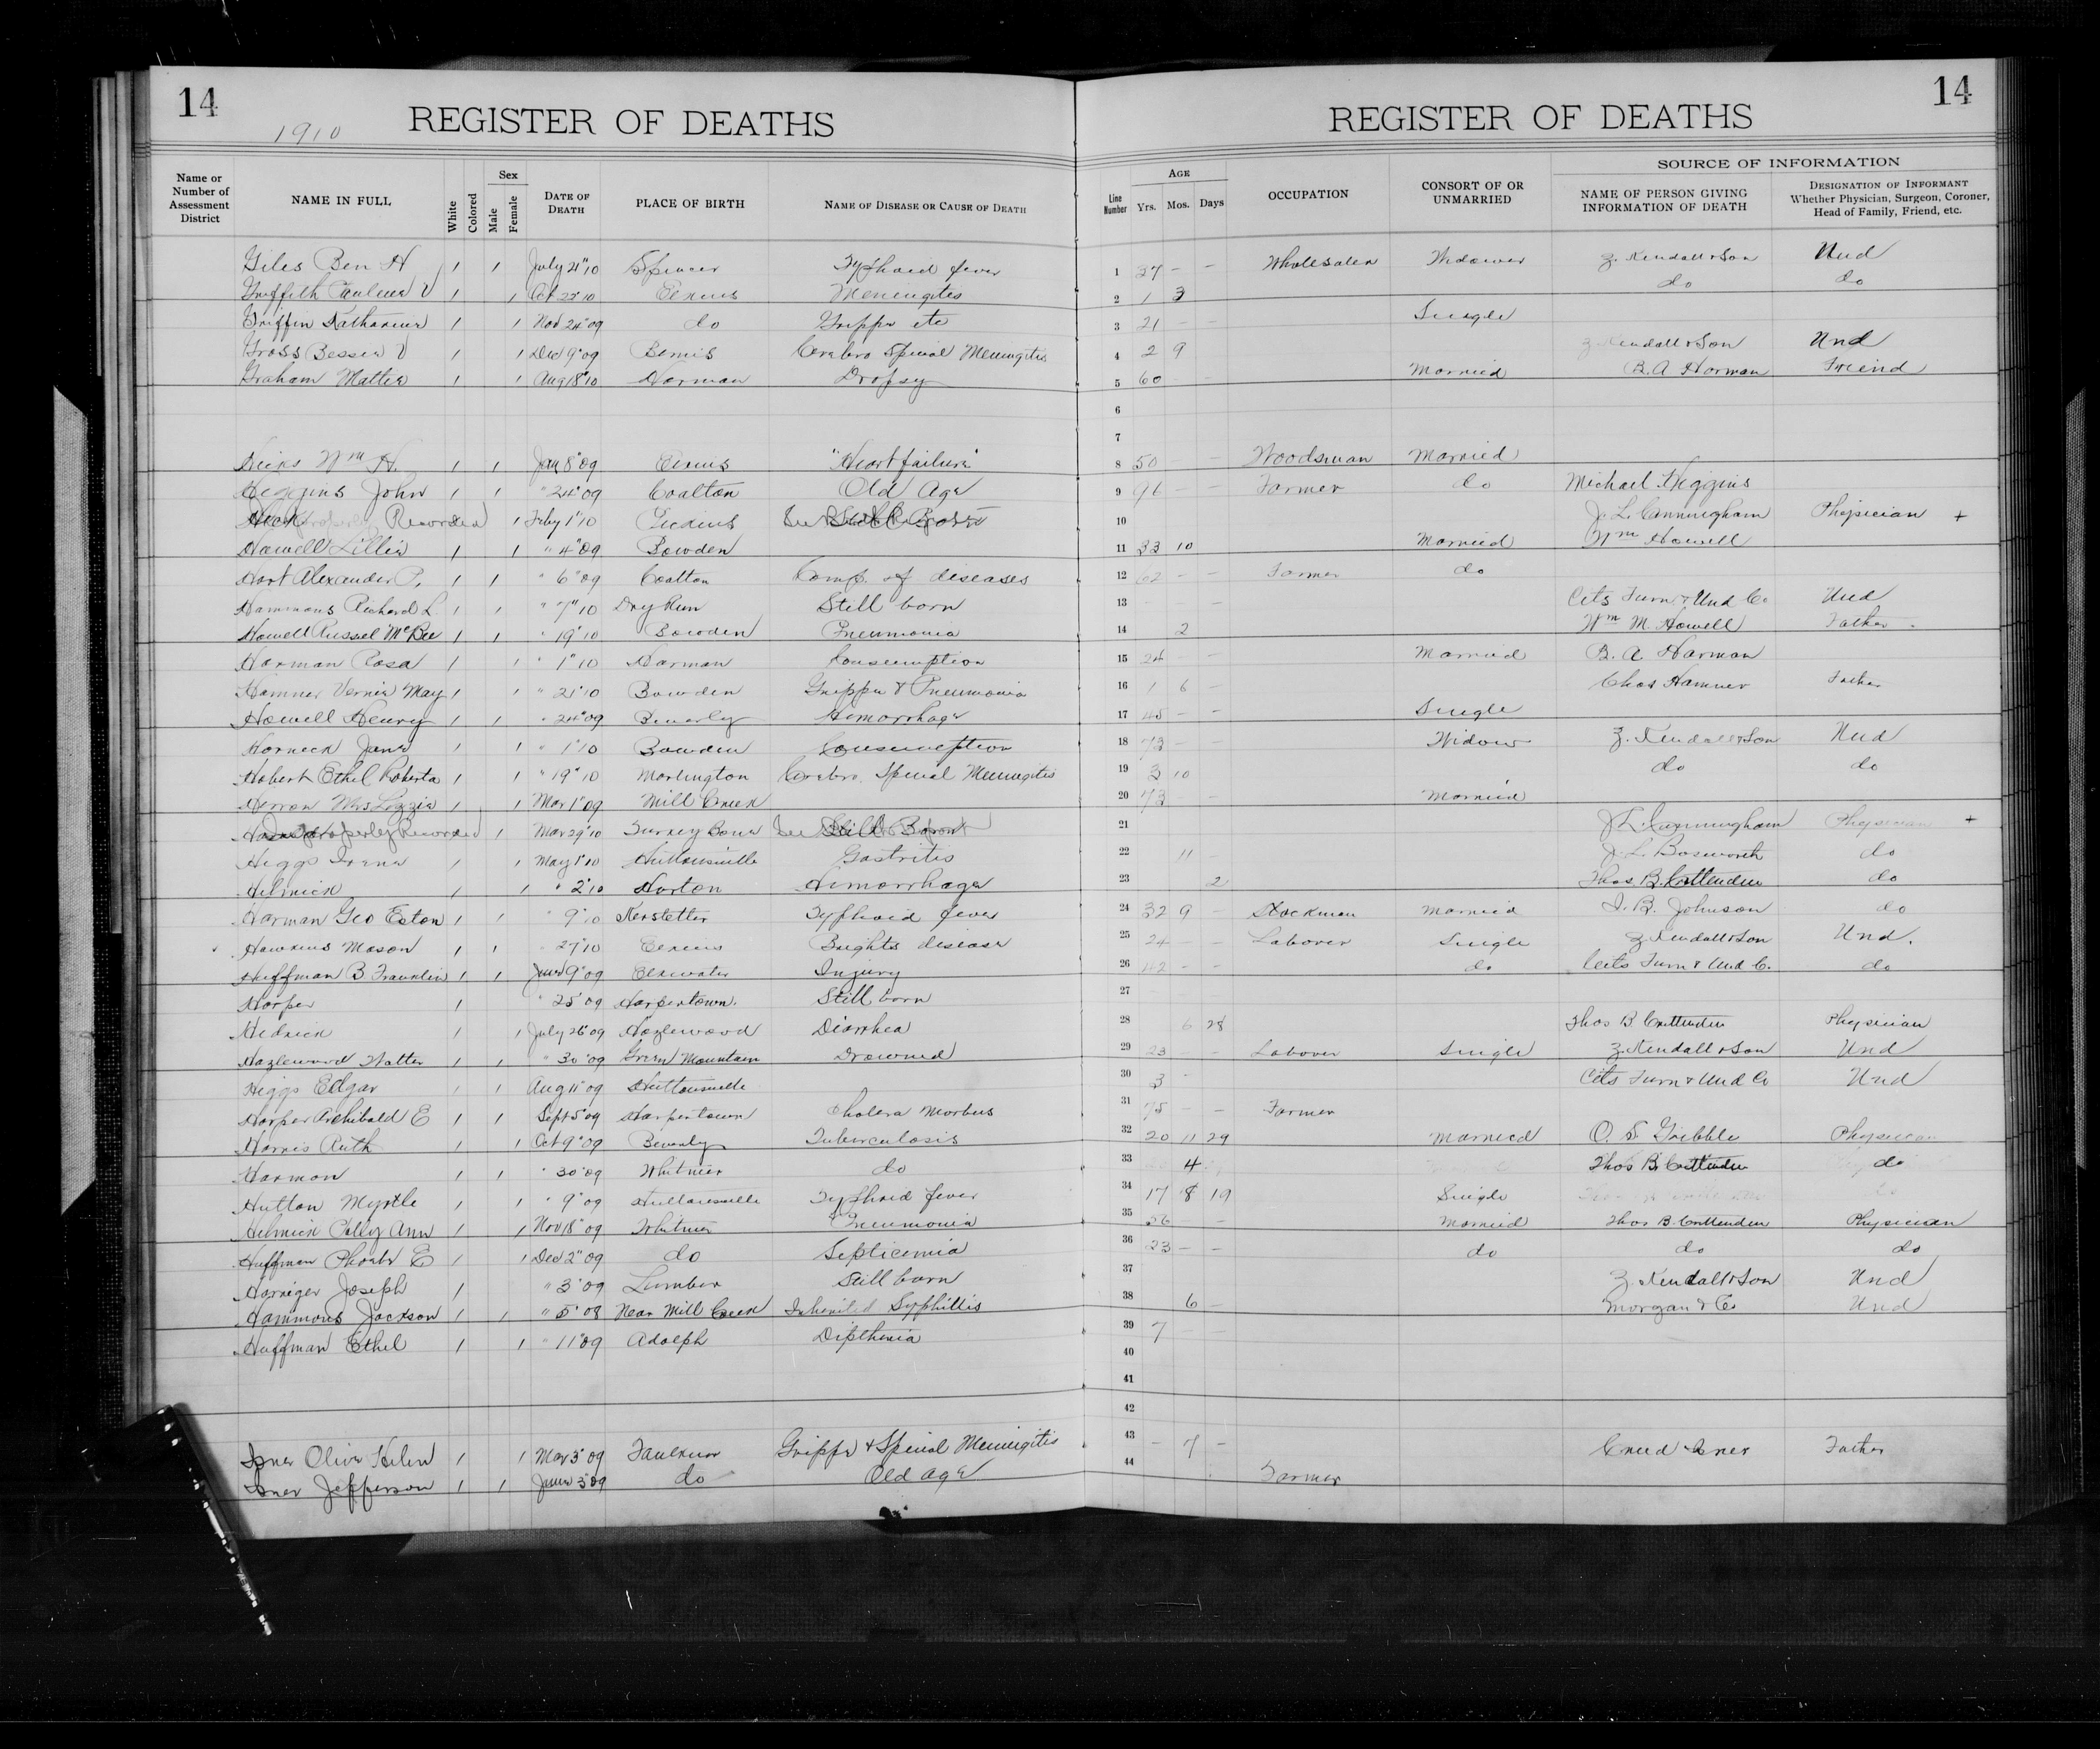 14
1910
REGISTER OF DEATHS
REGISTER OF DEATHS
14
Name or Number of Assessment District
NAME IN FULL
White
Colored
Sex
Male
Female
DATE OF DEATH
PLACE OF BIRTH
NAME OF DISEASE OR CAUSE OF DEATH
Line Number
AGE
Yrs.
Mos.
Days
OCCUPATION
CONSORT OF OR UNMARRIED
SOURCE OF INFORMATION
NAME OF PERSON GIVING INFORMATION OF DEATH
DESIGNATION OF INFORMANT
Whether Physician, Surgeon, Coroner, Head of Family, Friend, etc.
Giles Ben H 1 1 July 21"10 Spencer Typhoid fever 1 27 - - Wholesaler Widower Z. Kendall & Son Und
Griffith Pauline V 1 1 Oct 22"10 Elkins Meningitis 2 1 3 do do
Griffin Katharine 1 1 Nov 24"09 do Grippe etc 3 21 - - Single
Gross Bessie V 1 1 Dec 9"09 Bemis Cerebro Spinal Meningitis 4 2 9 Z. Kendall & Son Und
Graham Mattie 1 1 Aug 18"10 Harman Dropsy 5 60 - - Married B. A Harman Friend
6
7
Wm H. 1 1 Jan 8"09 Elkins "Heart failure" 8 50 - - Woodsman Married
Higgins John 1 1 " 24"09 Coalton Old Age 9 96 - - Farmer do Michael Higgins
Recorded 1 Feby 1"10 10 J. L. Cunningham Physician +
Howell Lillie 1 1 " 4"09 Bowden 11 33 10 Married Wm Howell
Hart Alexander P. 1 1 " 6"09 Coalton Comp. of diseases 12 62 - - Farmer do
Hammons Richard L. 1 1 " 7"10 Dry Run Still born 13 - - - Cits Furn & Und Co. Und
Howell Russel McBee 1 1 " 19"10 Bowden Pneumonia 14 2 Wm M. Howell Father
Harman Rosa 1 1 " 1"10 Harman Consumption 15 24 - - Married B. A Harman
Hamner Vernie May 1 1 " 21"10 Bowden Grippe & Pneumonia 16 1 6 - Chas Hamner Father
Howell Henry 1 1 " 24"09 Beverly Hemorrhage 17 45 - - Single
Horneck Jane 1 1 " 1"10 Bowden Consumption 18 73 - - Widow Z. Kendall & Son Und
Hobert Ethel Roberta 1 1 " 19"10 Marlington Cerebro Spinal Meningitis 19 3 10 do do
Herron Mrs. Lizzie 1 1 Mar 1"09 Mill Creek 20 73 - - Married
Properly Recorded 1 Mar 29"10 Turkey Bone 21 J. L. Cunningham Physician +
Higgs Irena 1 1 May 1"10 Huttonsville Gastritis 22 11 - J. L. Bosworth do
Helmick 1 1 " 2"10 Horton Hemorrhage 23 2 Thos. B. Crittenden do
Harman Geo Eston 1 1 " 9"10 Kerstetter Typhoid fever 24 32 9 - Stockman Married I. B. Johnson do
Hawkins Mason 1 1 " 27"10 Elkins Brights disease 25 24 - - Laborer Single Z. Kendall & Son Und.
Huffman B Franklin 1 1 June 9"09 Elkwater Injury 26 42 - - do Cits Furn & Und C. do
Harper 1 " 25"09 Harpertown. Still born 27
Hedrick 1 1 July 26"09 Hazlewood Diarrhea 28 6 28 Thos B Crittenden Physician
Hazlewood Walter 1 1 " 30"09 Green Mountain Drowned 29 23 - - Laborer Single Z. Kendall & Son Und
Higgs Edgar 1 1 Aug 11"09 Huttonsville 30 3 - Cits Furn & Und Co Und
Harper Archibald E 1 1 Sept 5"09 Harpertown Cholera Morbus 31 75 - - Farmer
Harris Ruth 1 1 Oct 9"09 Beverly Tuberculosis 32 20 11 29 Married O. S Gribble Physician
Harmon 1 1 " 30"09 Whitmer do 33 4 Thos B. Crittenden do
Hutton Myrtle 1 1 " 9"09 Huttonsville Typhoid fever 34 17 8 19 Single
Helmick Polly Ann 1 1 Nov 18"09 Whitmer Pneumonia 35 56 - - Married Thos B. Crittenden Physician
Huffman Phoebe E 1 1 Dec 2"09 do Septicemia 36 23 - - do do do
Joseph 1 " 3"09 Lumber Still born 37 Z. Kendall & Son Und
Hammons Jackson 1 1 " 5"08 Near Mill Creek Inherited Syphillis 38 6 - Morgan & Co Und
Huffman Ethel 1 1 " 11"09 Adolph Diptheria 39 7 - -
40
41
42
Isner Olive Helen 1 1 Mar 3"09 Faulkner Grippe & Spinal Meningitis 43 - 7 - Creed Isner Father
Isner Jefferson 1 1 June 3"09 do Old age 44 Farmer